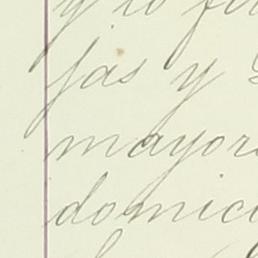 y lo
jas y
mayor
domic